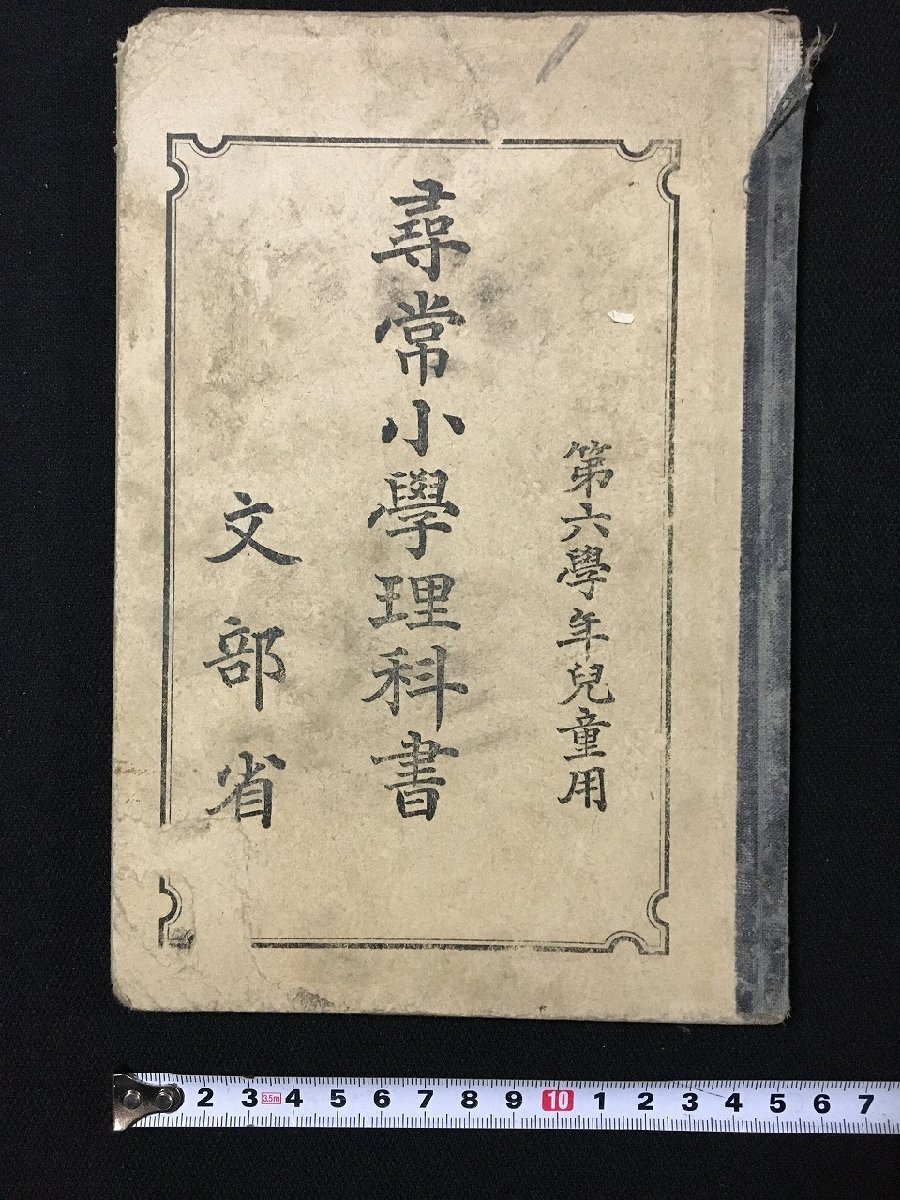 第六學年兒童用
尋常小學理科書
文部省
2 3 3.5m 4 5 6 7 8 9 10 1 2 3 4 5 6 7